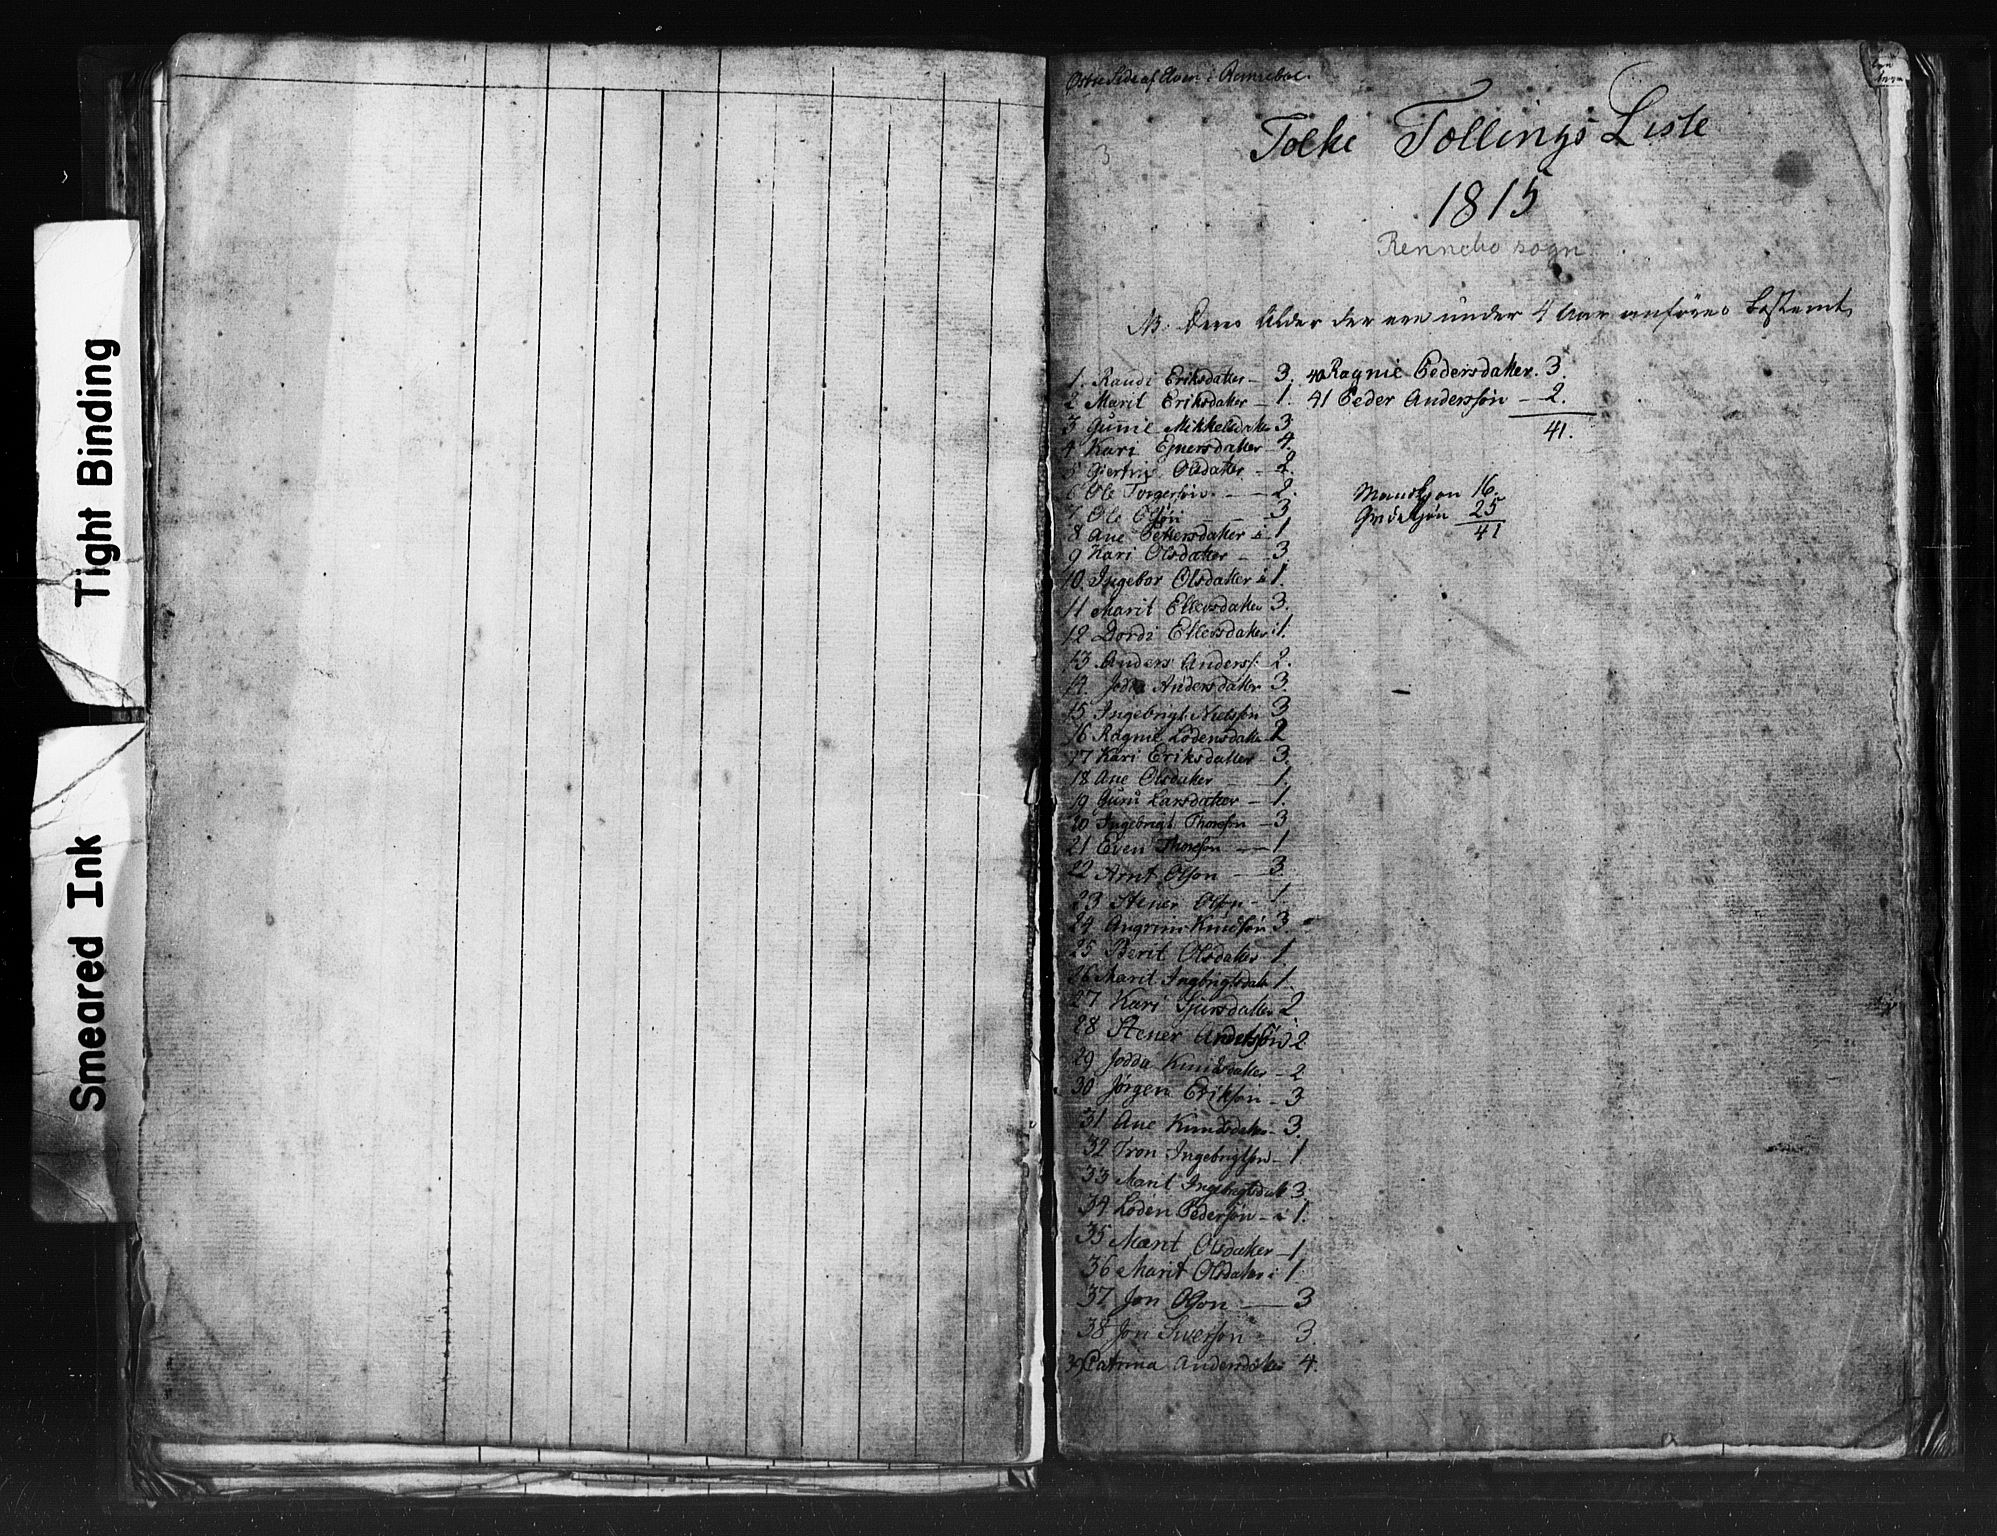 Tight Binding
Smeared Ink
Østre Side af Elven i Renneboe.
3
Folke Tællings Liste
1815
Rennebo sogn
NB. Deres Alder der ere under 4 Aar anføres bestemt
1. Randi Eriksdatter - 3.
2 Marit Eriksdatter - 1.
3 Gunne Mikkelsdatter 3
4 Kari Ejnersdatter - 4
5 Giertru Olsdatter - 2.
6 Ole Torgersøn - 2.
7 Ole Olsøn - 3
8 Ane Pettersdatter i 1
9 Kari Olsdatter - 3.
10. Ingebor Olsdatter i 1.
11 Marit Ellevsdatter 3.
12 Dordi Ellevsdatter i 1.
13 Anders Anders: - 2.
14. Jodda Andersdatter 3.
15 Ingebrigt Nielsøn 3
16 Ragnie Lodensdatter 2
17 Kari Eriksdatter - 3.
18 Ane Olsdatter - 1.
19 Guru Larsdatter - 1.
20 Ingebrigt Thoresøn - 3
21 Even Thoresøn - 1
22 Arnt Olsøn - 3.
23 Stener Olsøn - 1.
24 Angrim Knudsøn 3.
25 Berit Olsdatter - 1.
26 Marit Ingebrigtsdatt 1.
27 Kari Sjursdatter 2.
28 Stener Andersøn 2
29 Jodda Knudsdatter - 2
30 Jørgen Eriksøn - 3
31 Ane Knudsdatter - 3.
32 Tron Ingebrigtsøn - 1.
33 Marit Ingebrigtsdatt 3.
34 Loden Pedersøn - i 1.
35 Marit Olsdatter - 1
36 Marit Olsdatter i 1.
37 Jon Olson - 3
38 Jon Siversøn 3.
39 Catrina Andersdatter 4.
40 Ragnie Pedersdatter. 3.
41 Peder Anderssøn - 2.
41.
Mandkjøn 16.
Qvindekjøn 25
41